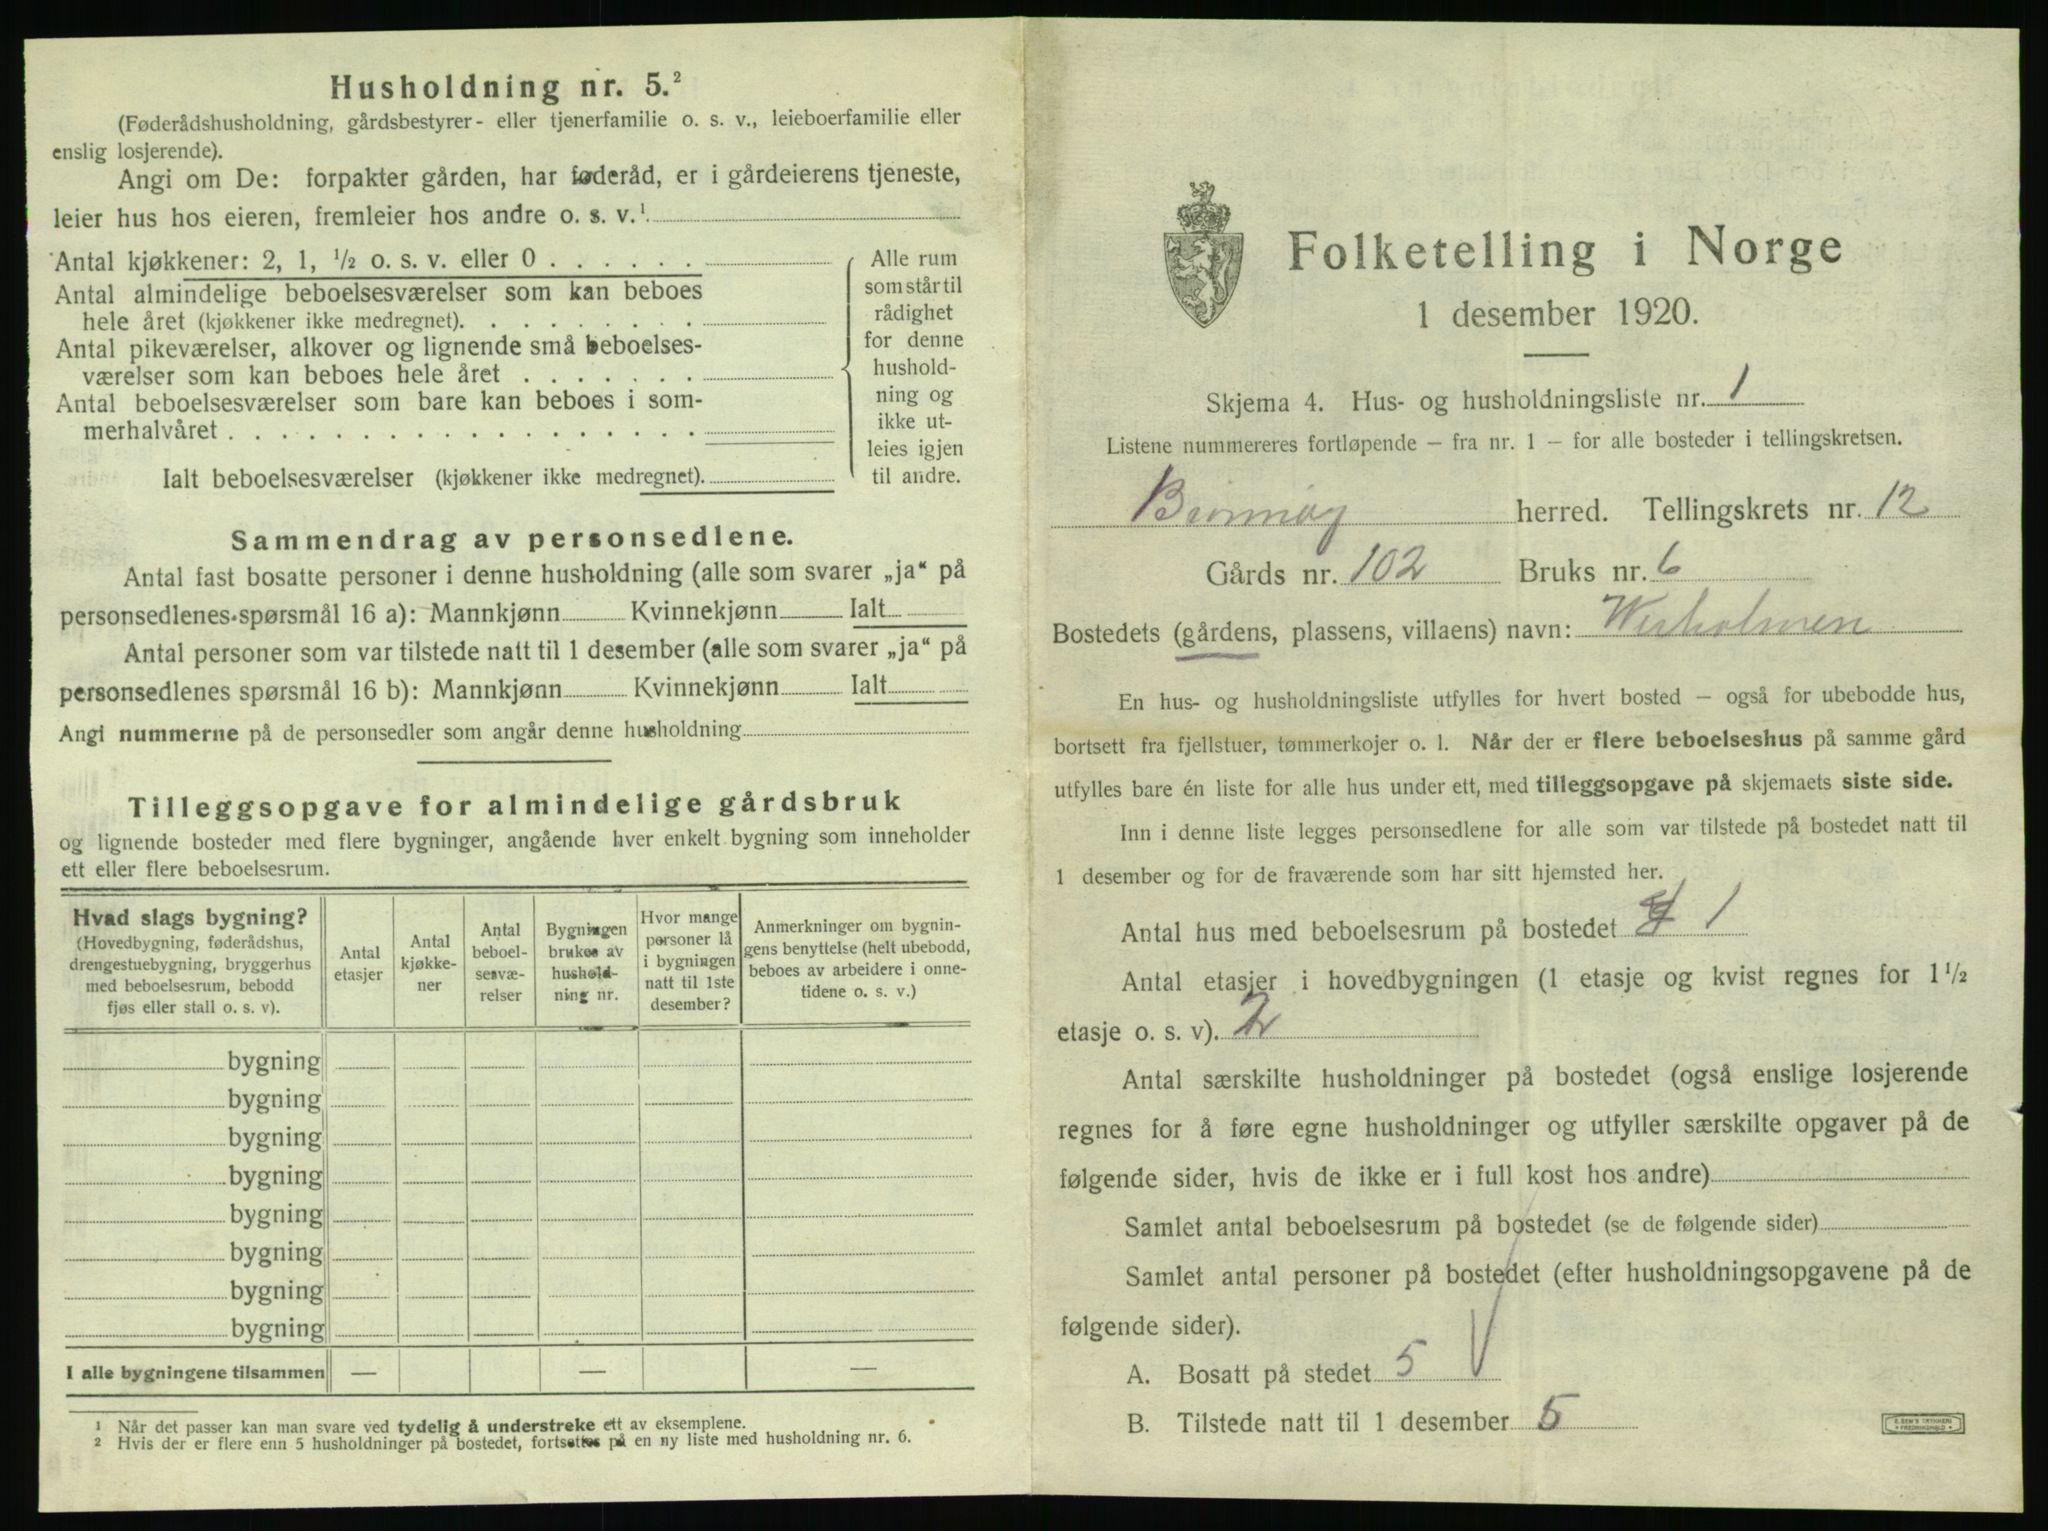 Husholdning nr. 5.²
(Føderådshusholdning, gårdsbestyrer- eller tjenerfamilie o. s. v., leieboerfamilie eller
enslig losjerende).
Angi om De: forpakter gården, har føderåd, er i gårdeierens tjeneste,
leier hus hos eieren, fremleier hos andre o. s. v.¹
Antal kjøkkener: 2, 1, ½ o. s. v. eller 0
Antal almindelige beboelsesværelser som kan beboes
hele året (kjøkkener ikke medregnet).
Antal pikeværelser, alkover og lignende små beboelses-
værelser som kan beboes hele året
Antal beboelsesværelser som bare kan beboes i som-
merhalvåret
Ialt beboelsesværelser (kjøkkener ikke medregnet).
Alle rum
som står til
rådighet
for denne
hushold-
ning og
ikke ut-
leies igjen
til andre.
Sammendrag av personsedlene.
Antal fast bosatte personer i denne husholdning (alle som svarer „ja“ på
personsedlenes spørsmål 16 a): Mannkjønn Kvinnekjønn Ialt
Antal personer som var tilstede natt til 1 desember (alle som svarer „ja“ på
personsedlenes spørsmål 16 b): Mannkjønn Kvinnekjønn Ialt
Angi nummerne på de personsedler som angår denne husholdning
Tilleggsopgave for almindelige gårdsbruk
og lignende bosteder med flere bygninger, angående hver enkelt bygning som inneholder
ett eller flere beboelsesrum.
Hvad slags bygning?
(Hovedbygning, føderådshus,
drengestuebygning, bryggerhus
med beboelsesrum, bebodd
fjøs eller stall o. s. v).
Antal
etasjer
Antal
kjøkke-
ner
Antal
beboel-
sesvæ-
relser
Bygningen
brukes av
hushold-
ning nr.
Hvor mange
personer lå
i bygningen
natt til 1ste
desember?
Anmerkninger om bygnin-
gens benyttelse (helt ubebodd,
beboes av arbeidere i onne-
tidene o. s. v.)
bygning
bygning
bygning
bygning
bygning
bygning
bygning
bygning
I alle bygningene tilsammen — — —
¹ Når det passer kan man svare ved tydelig å understreke ett av eksemplene.
² Hvis der er flere enn 5 husholdninger på bostedet, fortsettes på en ny liste med husholdning nr. 6.
Folketelling i Norge
1 desember 1920.
Skjema 4. Hus- og husholdningsliste nr. 1
Listene nummereres fortløpende — fra nr. 1 — for alle bosteder i tellingskretsen.
Brønnøy herred. Tellingskrets nr. 12
Gårds nr. 102 Bruks nr. 6
Bostedets (gårdens, plassens, villaens) navn:
En hus- og husholdningsliste utfylles for hvert bosted — også for ubebodde hus,
bortsett fra fjellstuer, tømmerkojer o. l. Når der er flere beboelseshus på samme gård
utfylles bare én liste for alle hus under ett, med tilleggsopgave på skjemaets siste side.
Inn i denne liste legges personsedlene for alle som var tilstede på bostedet natt til
1 desember og for de fraværende som har sitt hjemsted her.
Antal hus med beboelsesrum på bostedet 1
Antal etasjer i hovedbygningen (1 etasje og kvist regnes for 1½
etasje o. s. v). 2
Antal særskilte husholdninger på bostedet (også enslige losjerende
regnes for å føre egne husholdninger og utfyller særskilte opgaver på de
følgende sider, hvis de ikke er i full kost hos andre)
Samlet antal beboelsesrum på bostedet (se de følgende sider)
Samlet antal personer på bostedet (efter husholdningsopgavene på de
følgende sider).
A. Bosatt på stedet 5
B. Tilstede natt til 1 desember 5